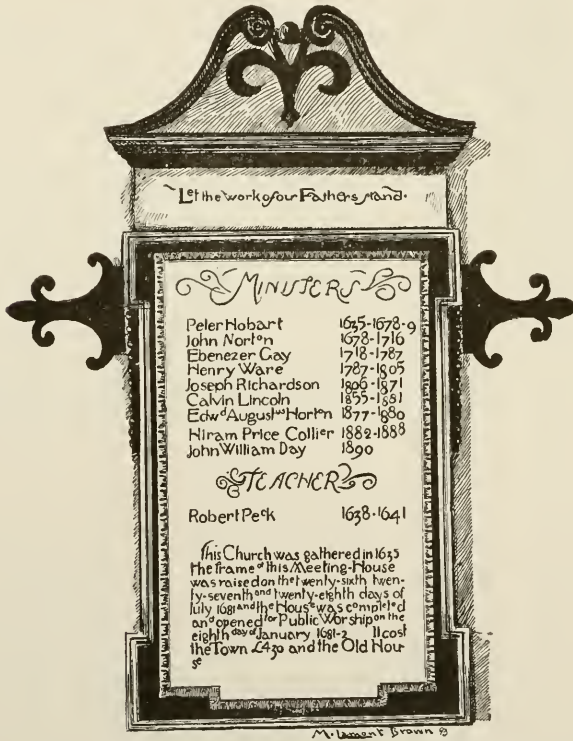 Let the work of our Fathers stand.
MINISTERS
Peter Hobart 1635-1678-9
John Norton 1678-1716
Ebenezer Gay 1718-1787
Henry Ware 1787-1805
Joseph Richardson 1806-1871
Calvin Lincoln 1855-1881
Edwd Augustus Horton 1877-1880
Hiram Price Collier 1882-1888
John William Day 1890
TEACHER
Robert Peck 1638-1641
This Church was gathered in 1635
the frame of this Meeting-House
was raised on the twenty-sixth twen-
ty-seventh and twenty-eighth days of
July 1681 and the House was completed
and opened for Public Worship on the
eighth day of January 1681-2 It cost
the Town £430 and the Old Hou
se
M. Lamont Brown